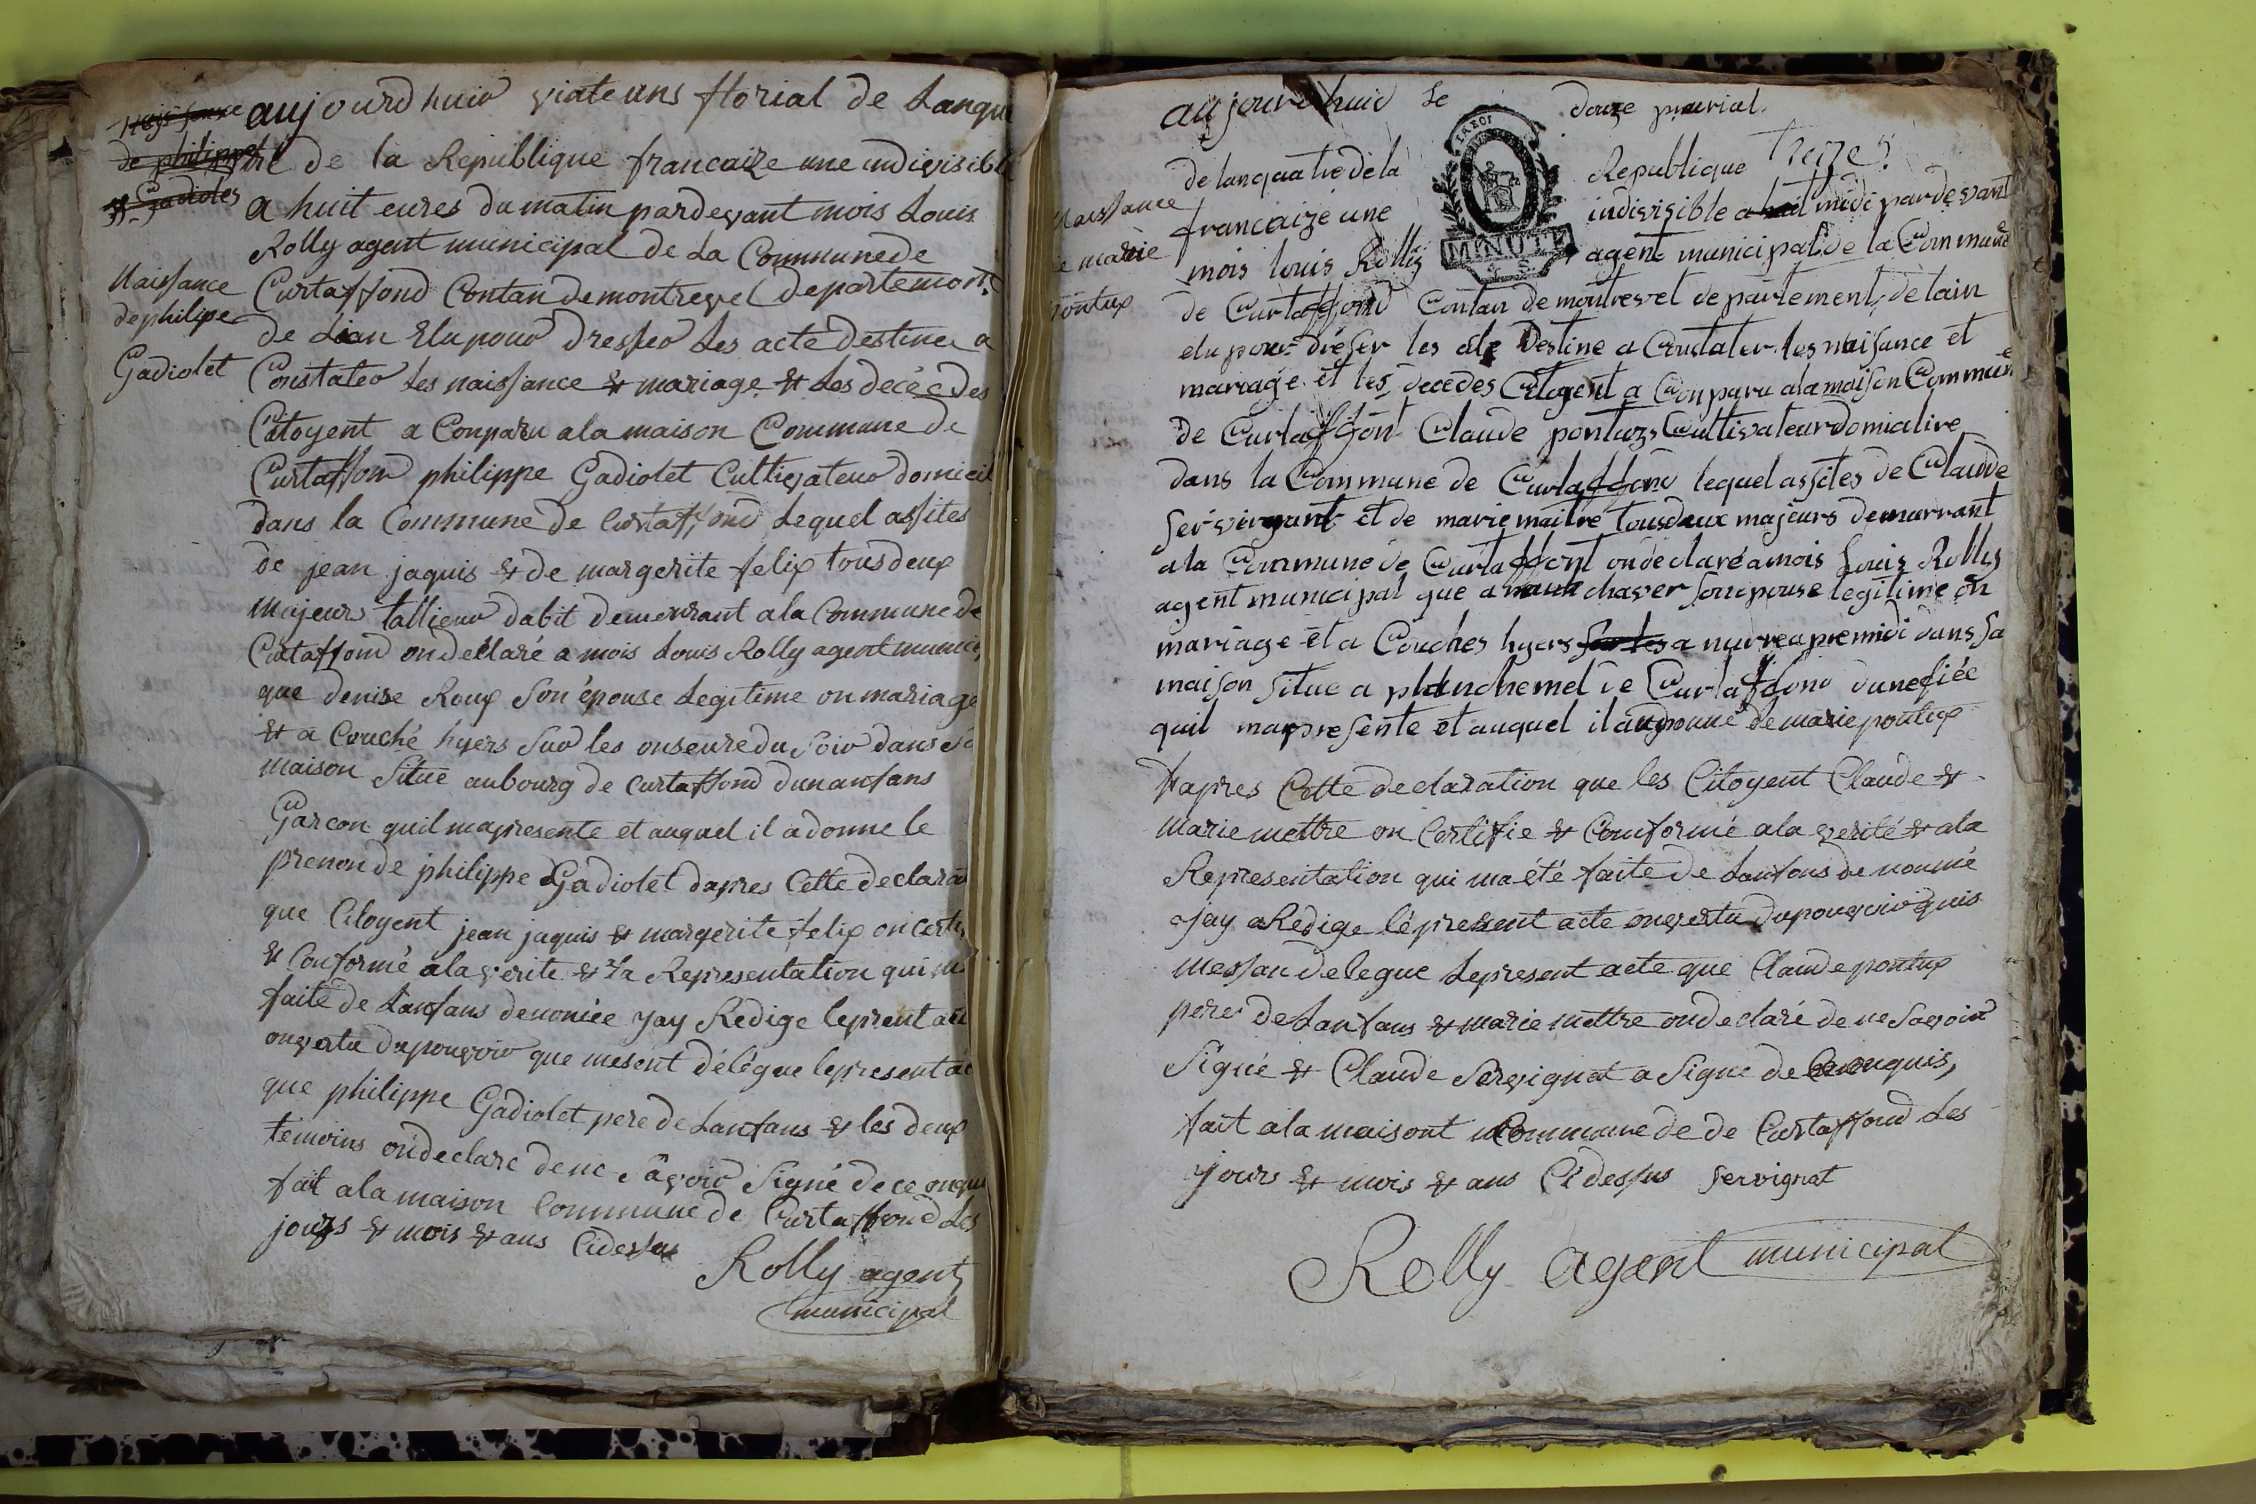 Naissance
de philippe
Gadiolet
aujourdhuiv viateuns florial de Lanqua
tre de la Republique francaize une indivisible
a huit eures du matin pardevant mois Louis
Rolly agent municipal de La Commune de
Curtaffond Contan demontrevel departemont
de Lian Elu pour Dresser Les acte destinee a
Constater Les naissance & mariage & Les decée des
Citoyent a Conparu a la maison Commune de
Curtaffond philippe Gadiolet Cultivateur domicil
dans la Commune de Curtaffond Lequel assites
de jean jaquis & de margerite felix tous deux
Majeur tallieur dabit demeurant a la Commune de
Curtaffond on declaré a mois Louis Rolly agent munici
que denise Roux son épouse Legitime on mariage
& a Couché hyers sur les onseure du soir dans sa
maison Situe au bourg de Curtaffond dun anfans
Garcon quil mapresente et auquel il a donne le
prenon de philippe Gadiolet dapres Cette declara
que Citoyent jean jaquis & margerite felix on certi
& Conformé a la verite & la Representation qui m
faite de Lanfans denomée Jay Redige leprent act
onvertu dupouvoir que mesont délégue lepresent ac
que philippe Gadiolet pere de Lanfans & les deux
temoins on declare de ne savoir Signé de ce onquis
fait a la maison Commune de Curtaffond Les
jours & mois & ans Cidessus
Rolly agent
municipal
Naissance
de philipe
Gadiolet
aujourdhuid Le douze prairial.
Treize
de lanquatre de la Republique
francaize une indivisible a huit midi pardevant
mois Louis Rolly agent municipal de la Commune
de Curtaffond Contan de montrevel departement de lain
elu pour dreser les acte Destine a Constater les naisance et
mariage et les decedes Citoyent a Conparu a la maison Commune
de Curtaffont Claude pontux Cultivateur domicilire
dans la Commune de Curtaffond lequel assites de Claude
servignant et de marie maitre tous deux majeurs demurrant
a la Commune de Curtaffont on declaré a mois Louis Rolly
agent municipal que chaver son epouse legitime on
mariage et a Couches hyers sur les a nurre apremidi dans sa
maison situe a planchemel de Curtaffond dune fiée
quil mappresente et auquel il a donné de marie pontux
Dapres Cette declaration que les Citoyent Claude &
marie mettre on Certifie & Conformé a la verité & a la
Representation qui ma été faite de Lanfans de nommé
Jay a Redige lé present acte onvertu dupouvoir quis
messon delegue Lepresent acte que Claude pontux
pere de Lanfans & marie mettre on declaré de ne Savoir
Signé & Claude Servignat a Signe de ce onquis,
fait a la maisont Commune de de Curtaffond Les
jours & mois & ans Cidessus servignat
Rolly agent municipal
Naissance
e marie
pontux
LA LOI
MINUTE